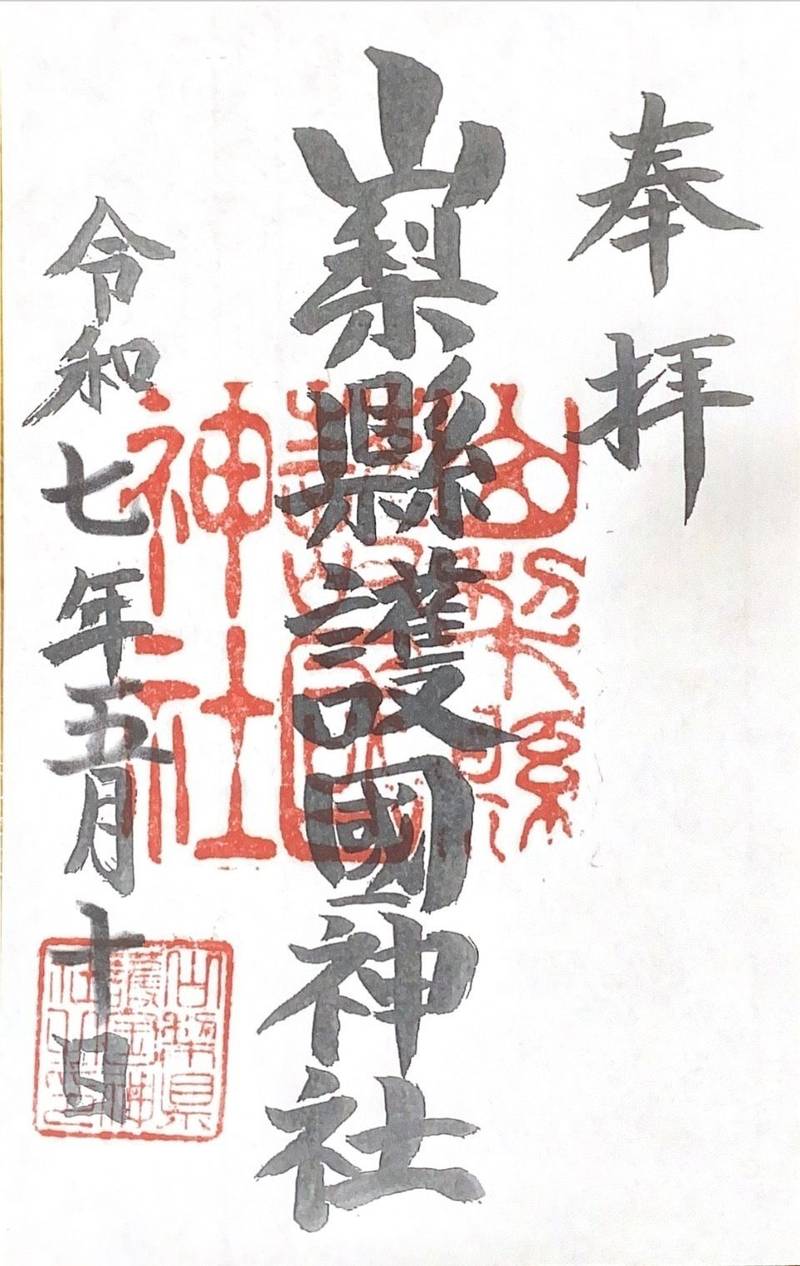 奉拝
山梨縣護國神社
令和七年五月十日
山梨縣
護國
神社
山梨県
護国神
社之印